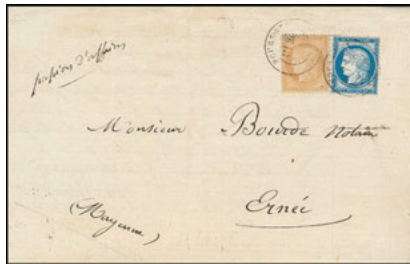 papiers d'affaires
Monsieur Bourde Notaire
Ernée
(Mayenne)